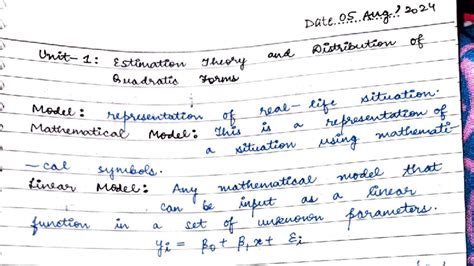 Date 05 Aug' 2024
Unit-1: Estimation Theory and Distribution of
Quadratic Forms
Model: representation of real-life situation.
Mathematical Model: This is a representation of
a situation using mathemati-
-cal symbols.
Linear Model: Any mathematical model that
can be input as a linear
function in a set of unknown parameters.
yi = β0 + β1x + εi